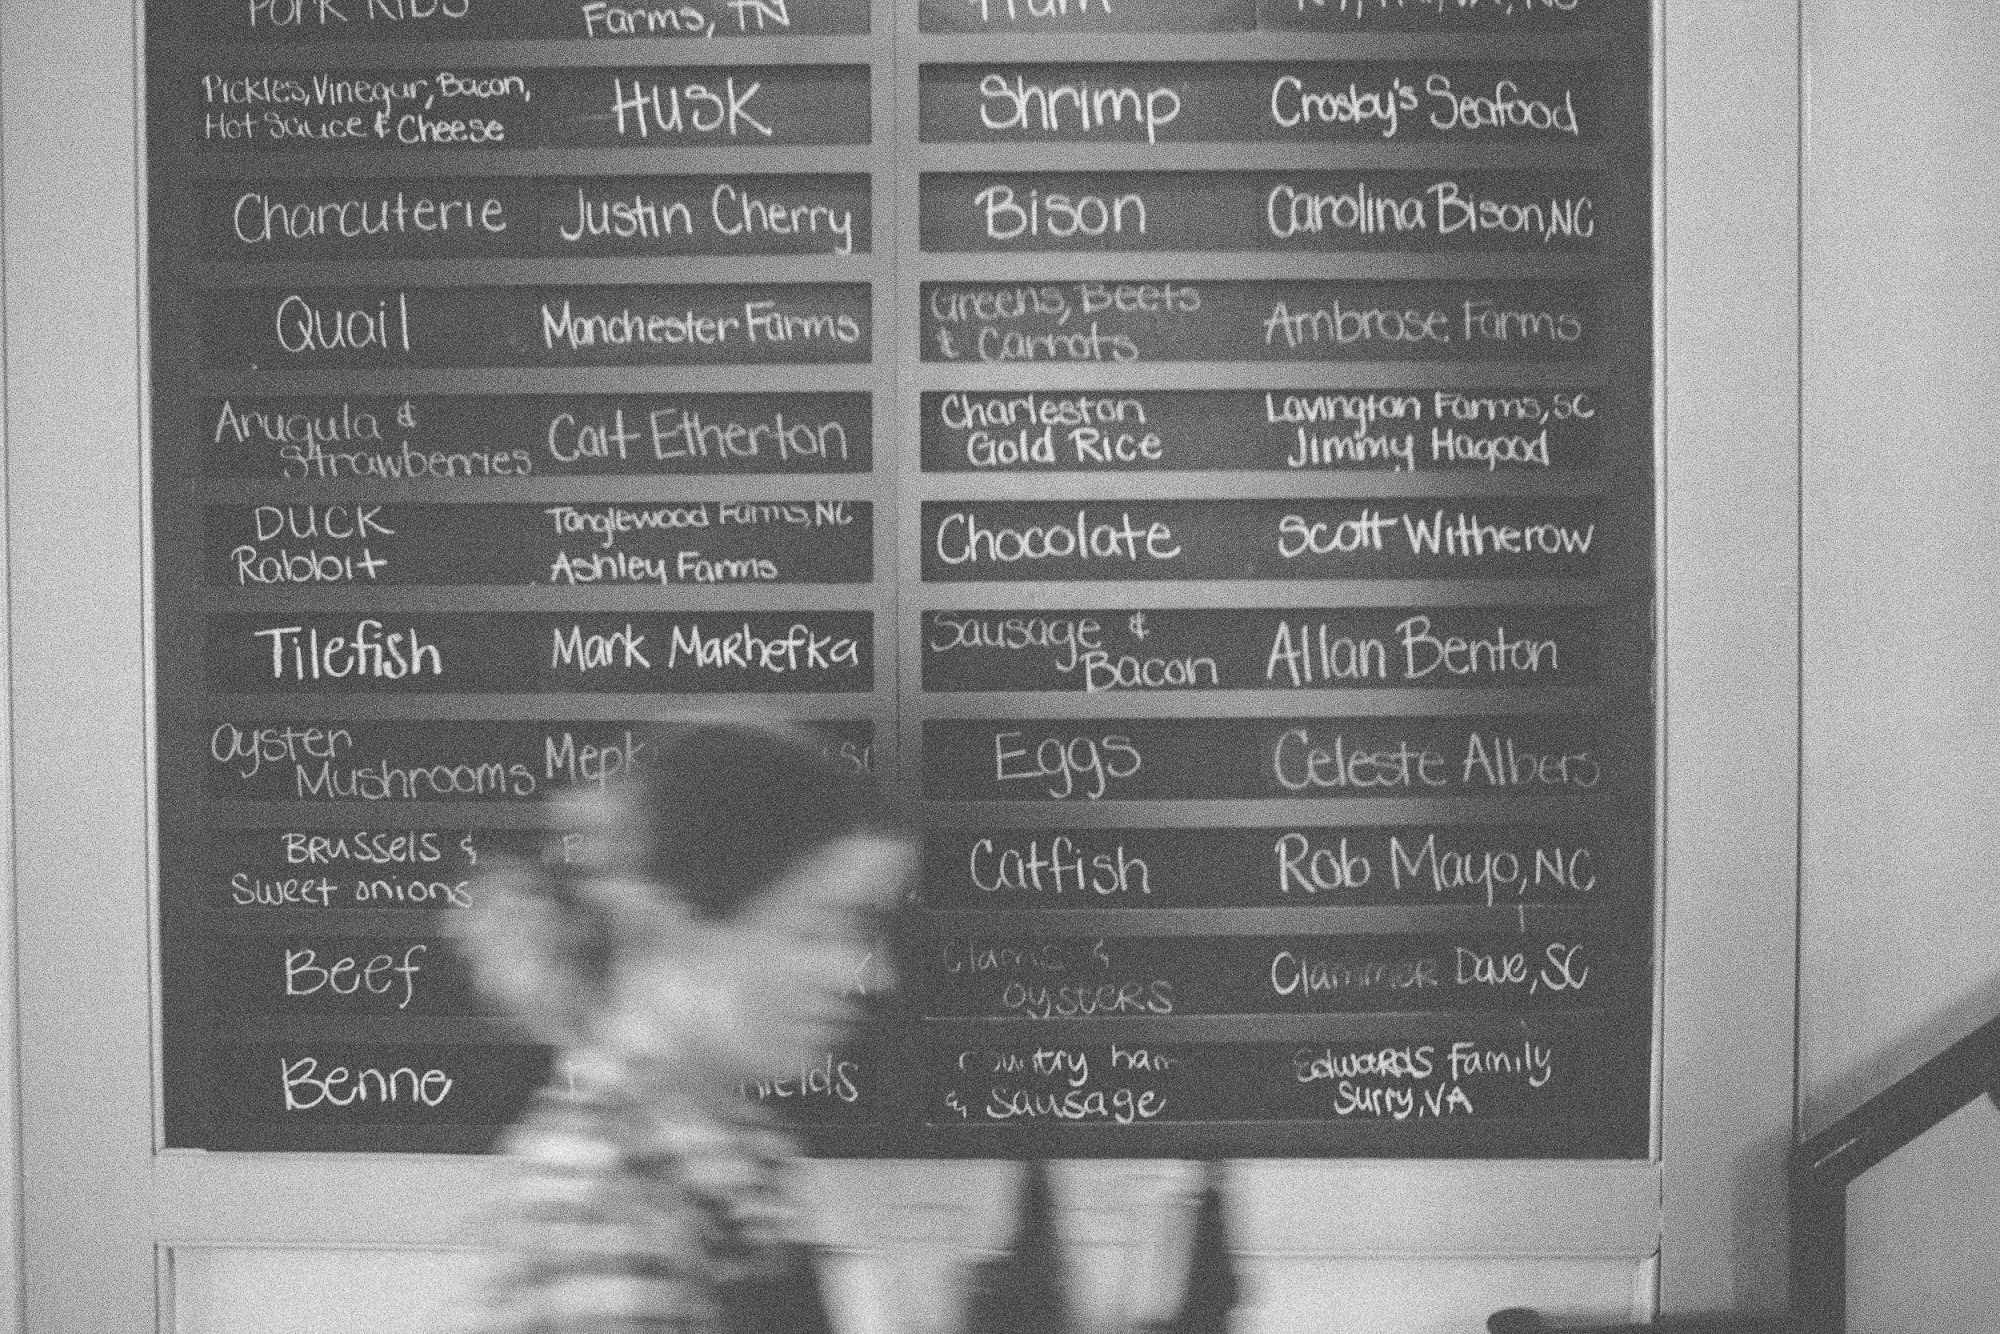 PORK RIBS
Farms, TN
Pickles, Vinegar, Bacon,
Hot Sauce & Cheese
HUSK
Charcuterie
Justin Cherry
Quail
Manchester Farms
Arugula &
Strawberries
Cait Etherton
DUCK
Rabbit
Tanglewood Farms, NC
Ashley Farms
Tilefish
Mark Marhefka
Oyster
Mushrooms
BRUSSELS &
Sweet onions
Beef
Benne
Ham
Shrimp
Crosby's Seafood
Bison
Carolina Bison, NC
Greens, Beets
& Carrots
Ambrose Farms
Charleston
Gold Rice
Lavington Farms, SC
Jimmy Hagood
Chocolate
Scott Witherow
Sausage &
Bacon
Allan Benton
Eggs
Celeste Albers
Catfish
Rob Mayo, NC
Clams &
OYSTERS
Clammer Dave, SC
Country ham
& Sausage
Edwards Family
Surry, VA